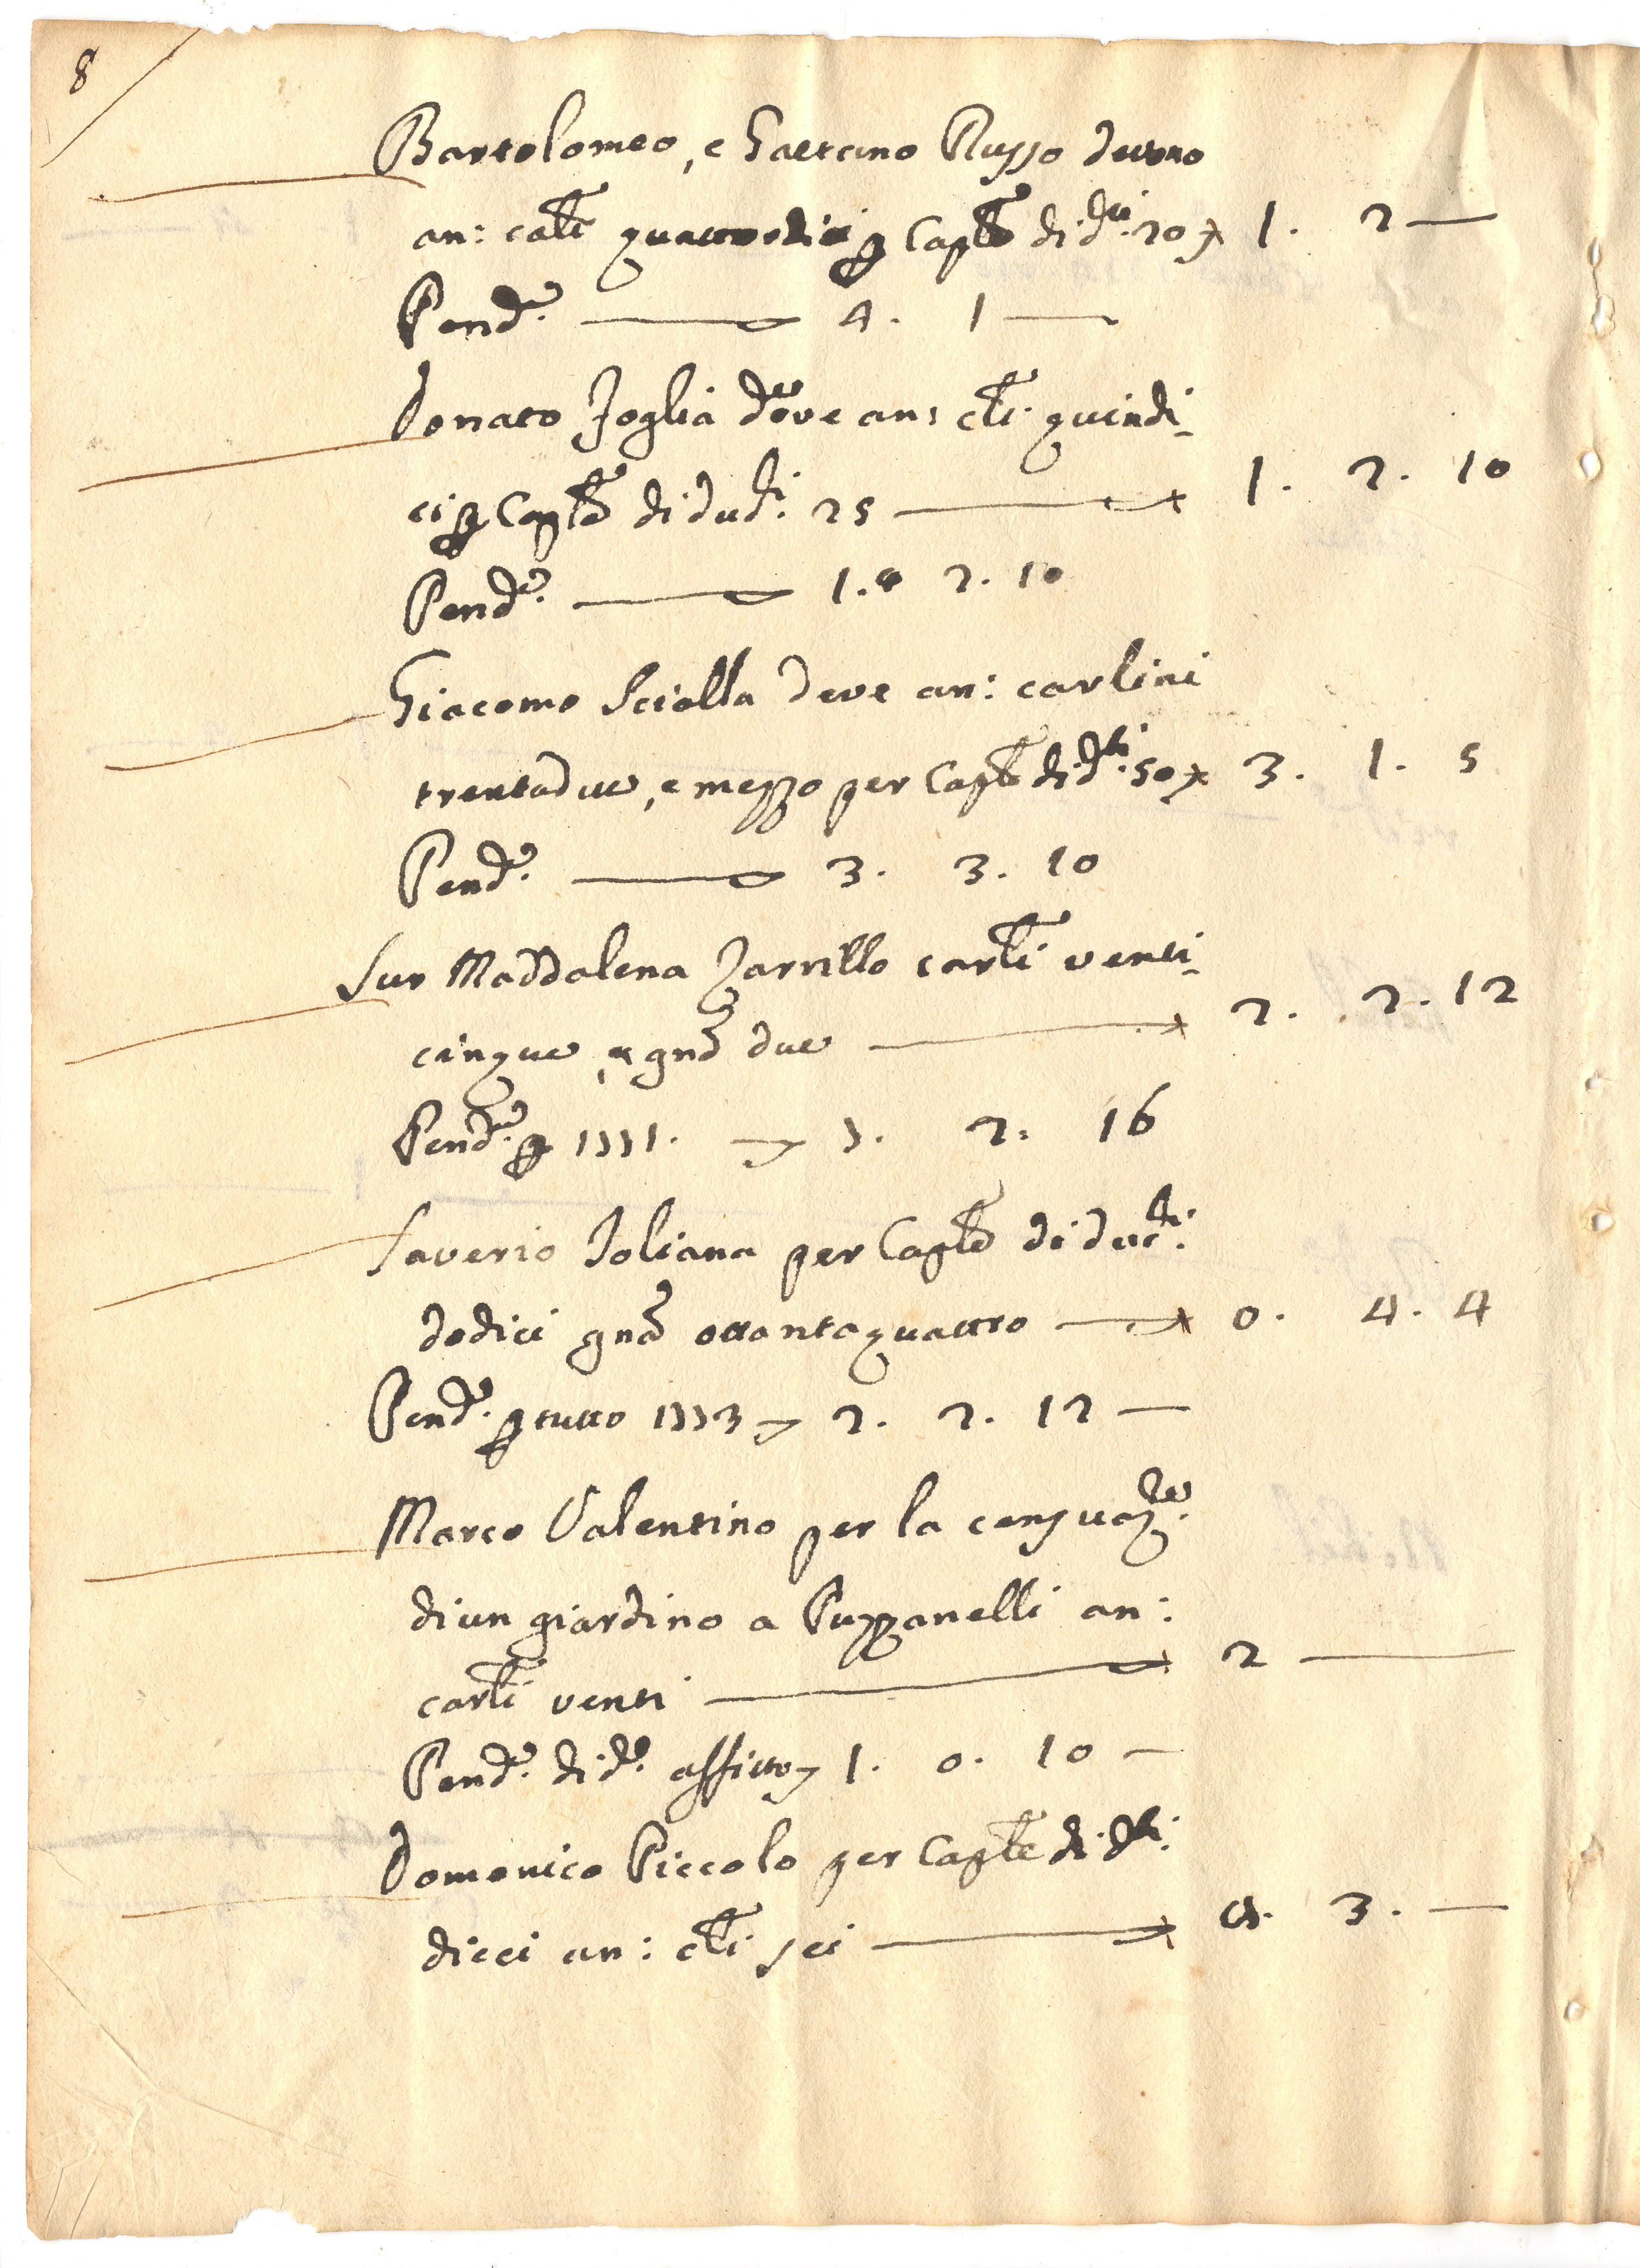 8
Bartolomeo, e Gaetano Russo devono
an: carli quattordici p Caple di d.ti 20 1. 2 —
Pend.e — 4. 1 —
Donato Joglia deve an: cli quindi-
ci p Caple di duc.ti 25 — 1. 2. 10
Pend.e — 1. 2. 10
Giacomo Sciolla deve an: carlini
trentadue, e mezzo per Caple di d.ti 50 3. 1. 5
Pend.e — 3. 3. 10
Suor Maddalena Zarrillo carli venti-
cinque, e gna due — 2. 2. 12
Pend.e p 1771. — 7. 2: 16
Saverio Joliana per Caple di duc.ti
dodici gna ottantaquattro — 0. 4. 4
Pend.e p tutto 1773 — 2. 2. 12 —
Marco Valentino per la censuaz.ne
di un giardino a Puzzanelli an:
carli venti — 2 —
Pend.e di d.o affitto 1. 0. 10 —
Domenico Piccolo per Caple di d.ti
dieci an: cli sei — 0. 3. —